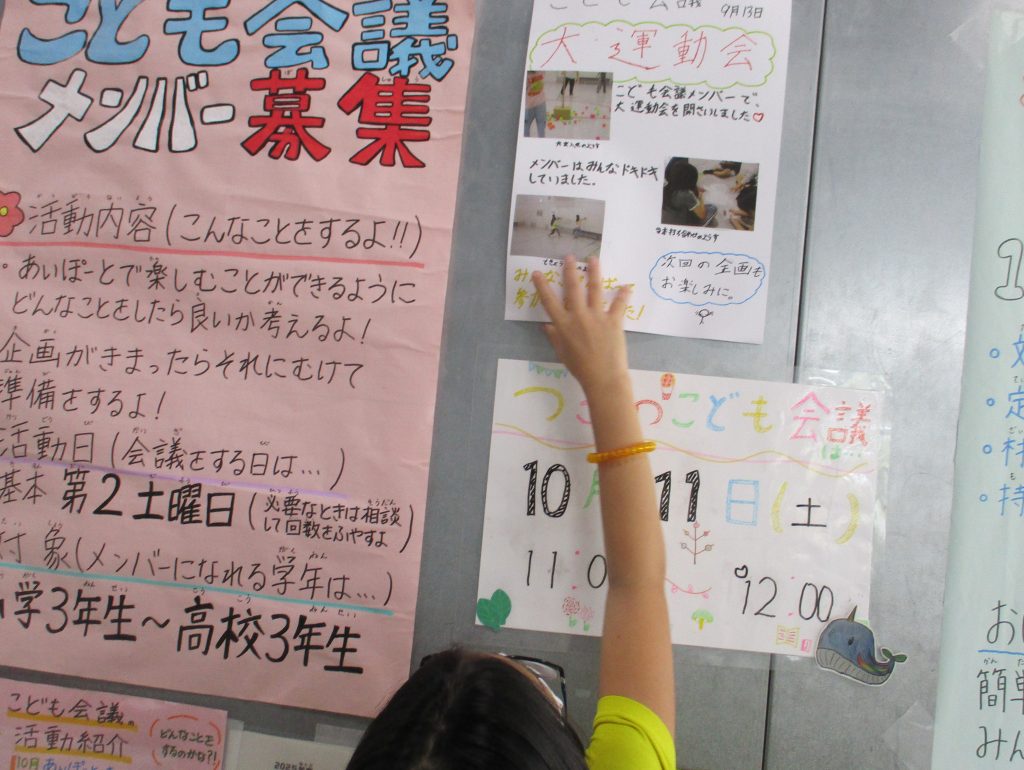 こども会議
メンバー募集
活動内容(こんなことをするよ!!)
・あいぽーとで楽しむことができるように
どんなことをしたら良いか考えるよ!
企画がきまったらそれにむけて
準備をするよ!
活動日(会議をする日は…)
基本 第2土曜日(必要なときは相談
して回数をふやすよ)
対象(メンバーになれる学年は…)
学3年生～高校3年生
こども会議の
活動紹介
どんなことを
するのかな?!
10月
こども会議 9月13日
大運動会
こども会議メンバーで、
大運動会を開さいしました♡
メンバーはみんなドキドキ
していました。
次回の企画も
お楽しみに。
こども会議
は…
10 11日(土)
11:0
12:00
簡単
みん